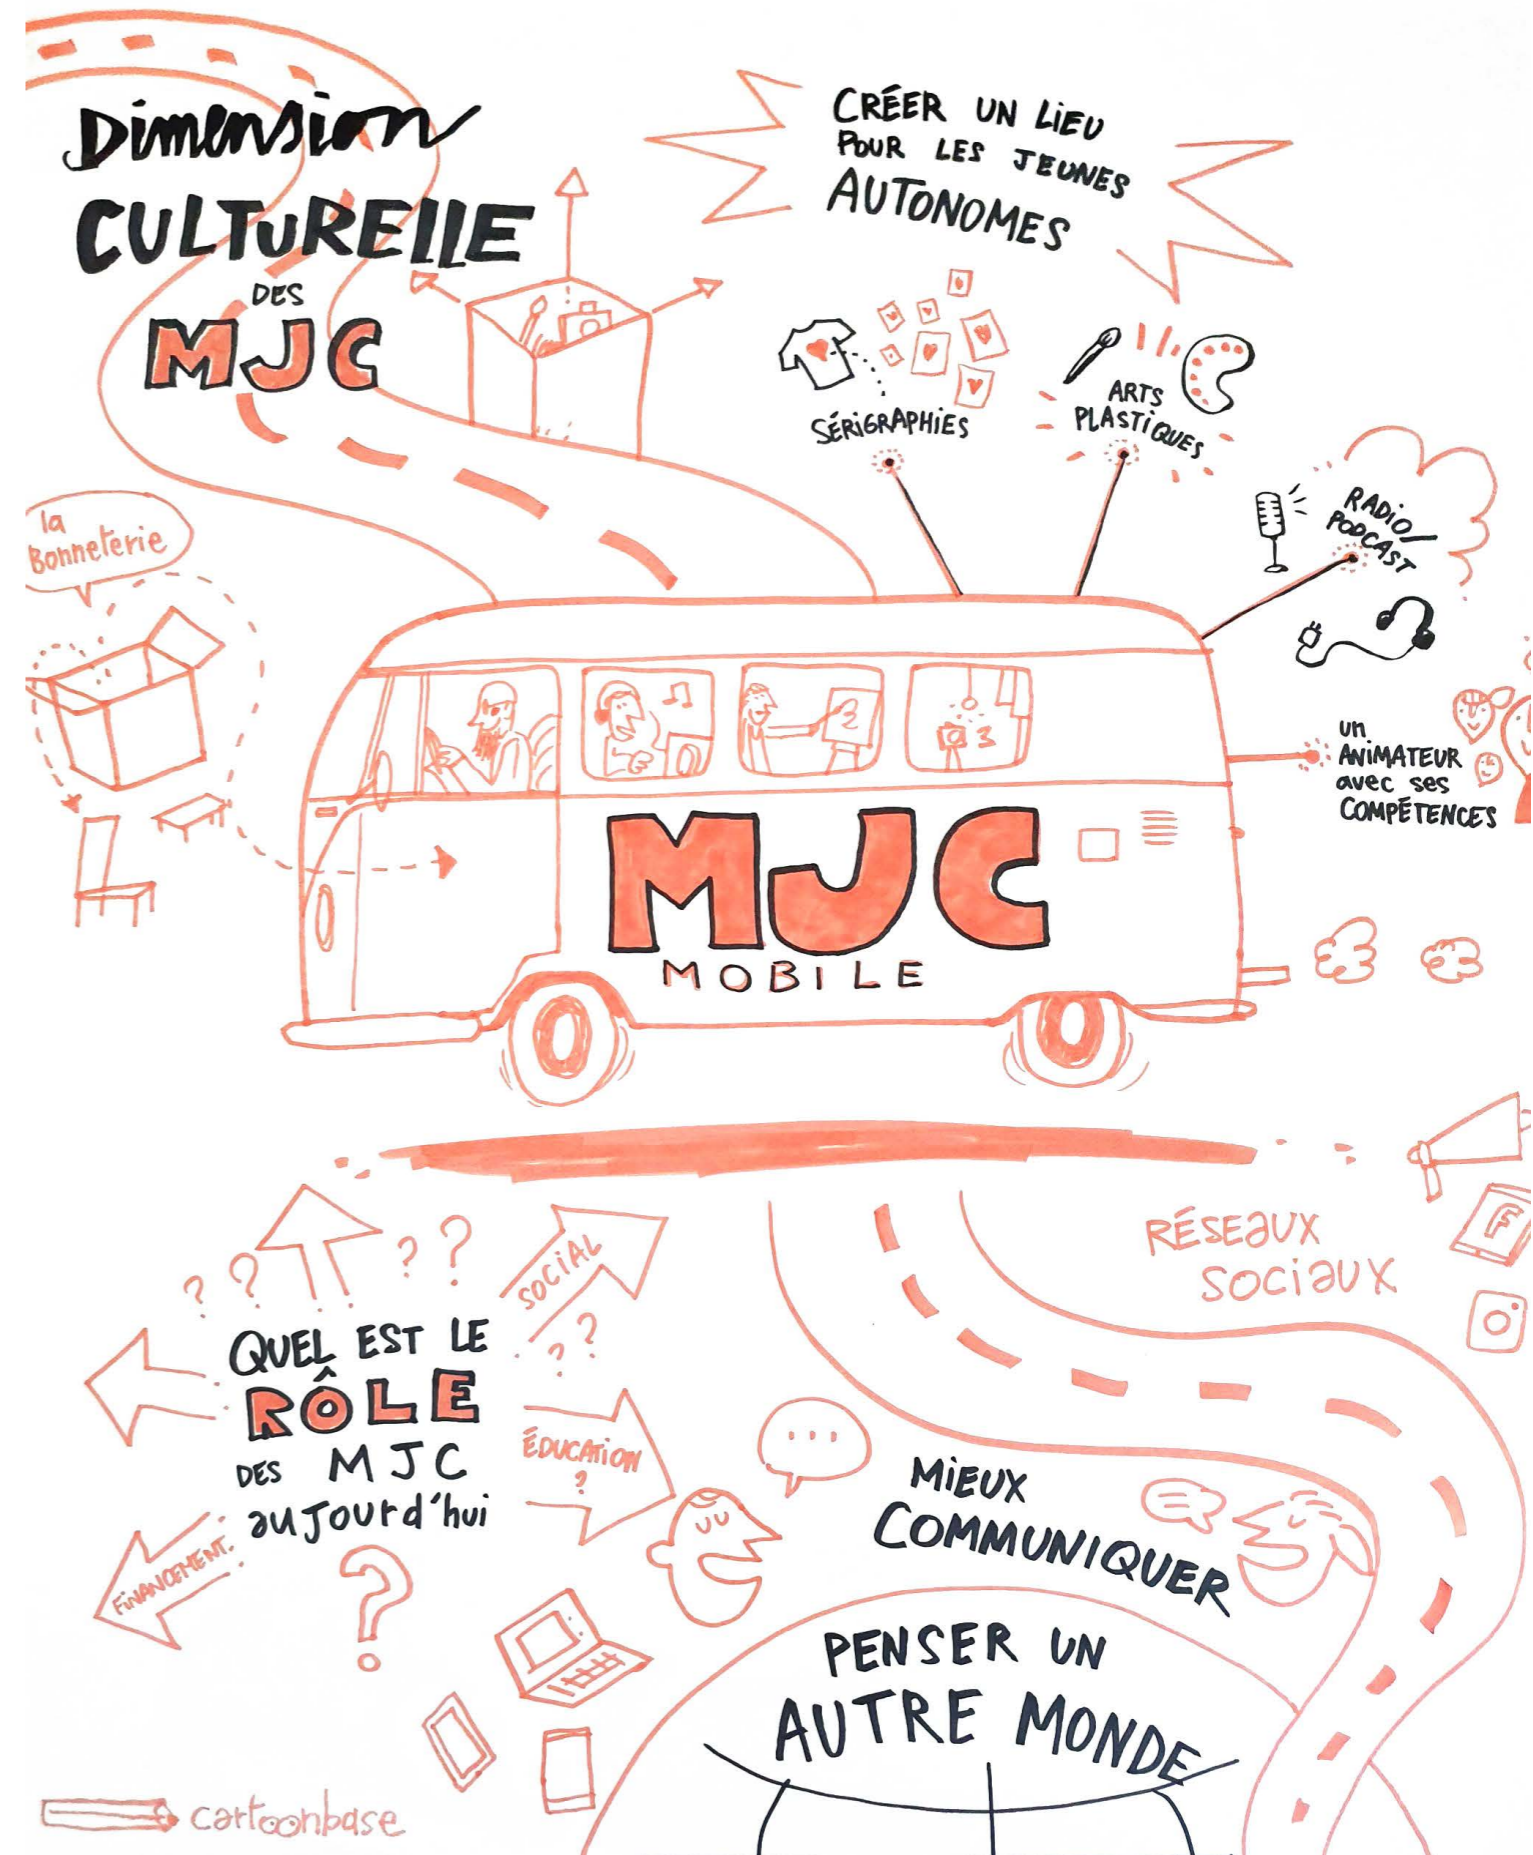 Dimension
CULTURELLE
DES
MJC
CRÉER UN LIEU
POUR LES JEUNES
AUTONOMES
SÉRIGRAPHIES
ARTS
PLASTIQUES
RADIO/
PODCAST
la
Bonneterie
un
ANIMATEUR
avec ses
COMPÉTENCES
MJC
MOBILE
RÉSEAUX
SOCIAUX
F
? ? ? ?
SOCIAL
? ?
QUEL EST LE
RÔLE
DES MJC
aujourd'hui
?
ÉDUCATION
?
FINANCEMENT.
...
MIEUX
COMMUNIQUER
PENSER UN
AUTRE MONDE
cartoonbase